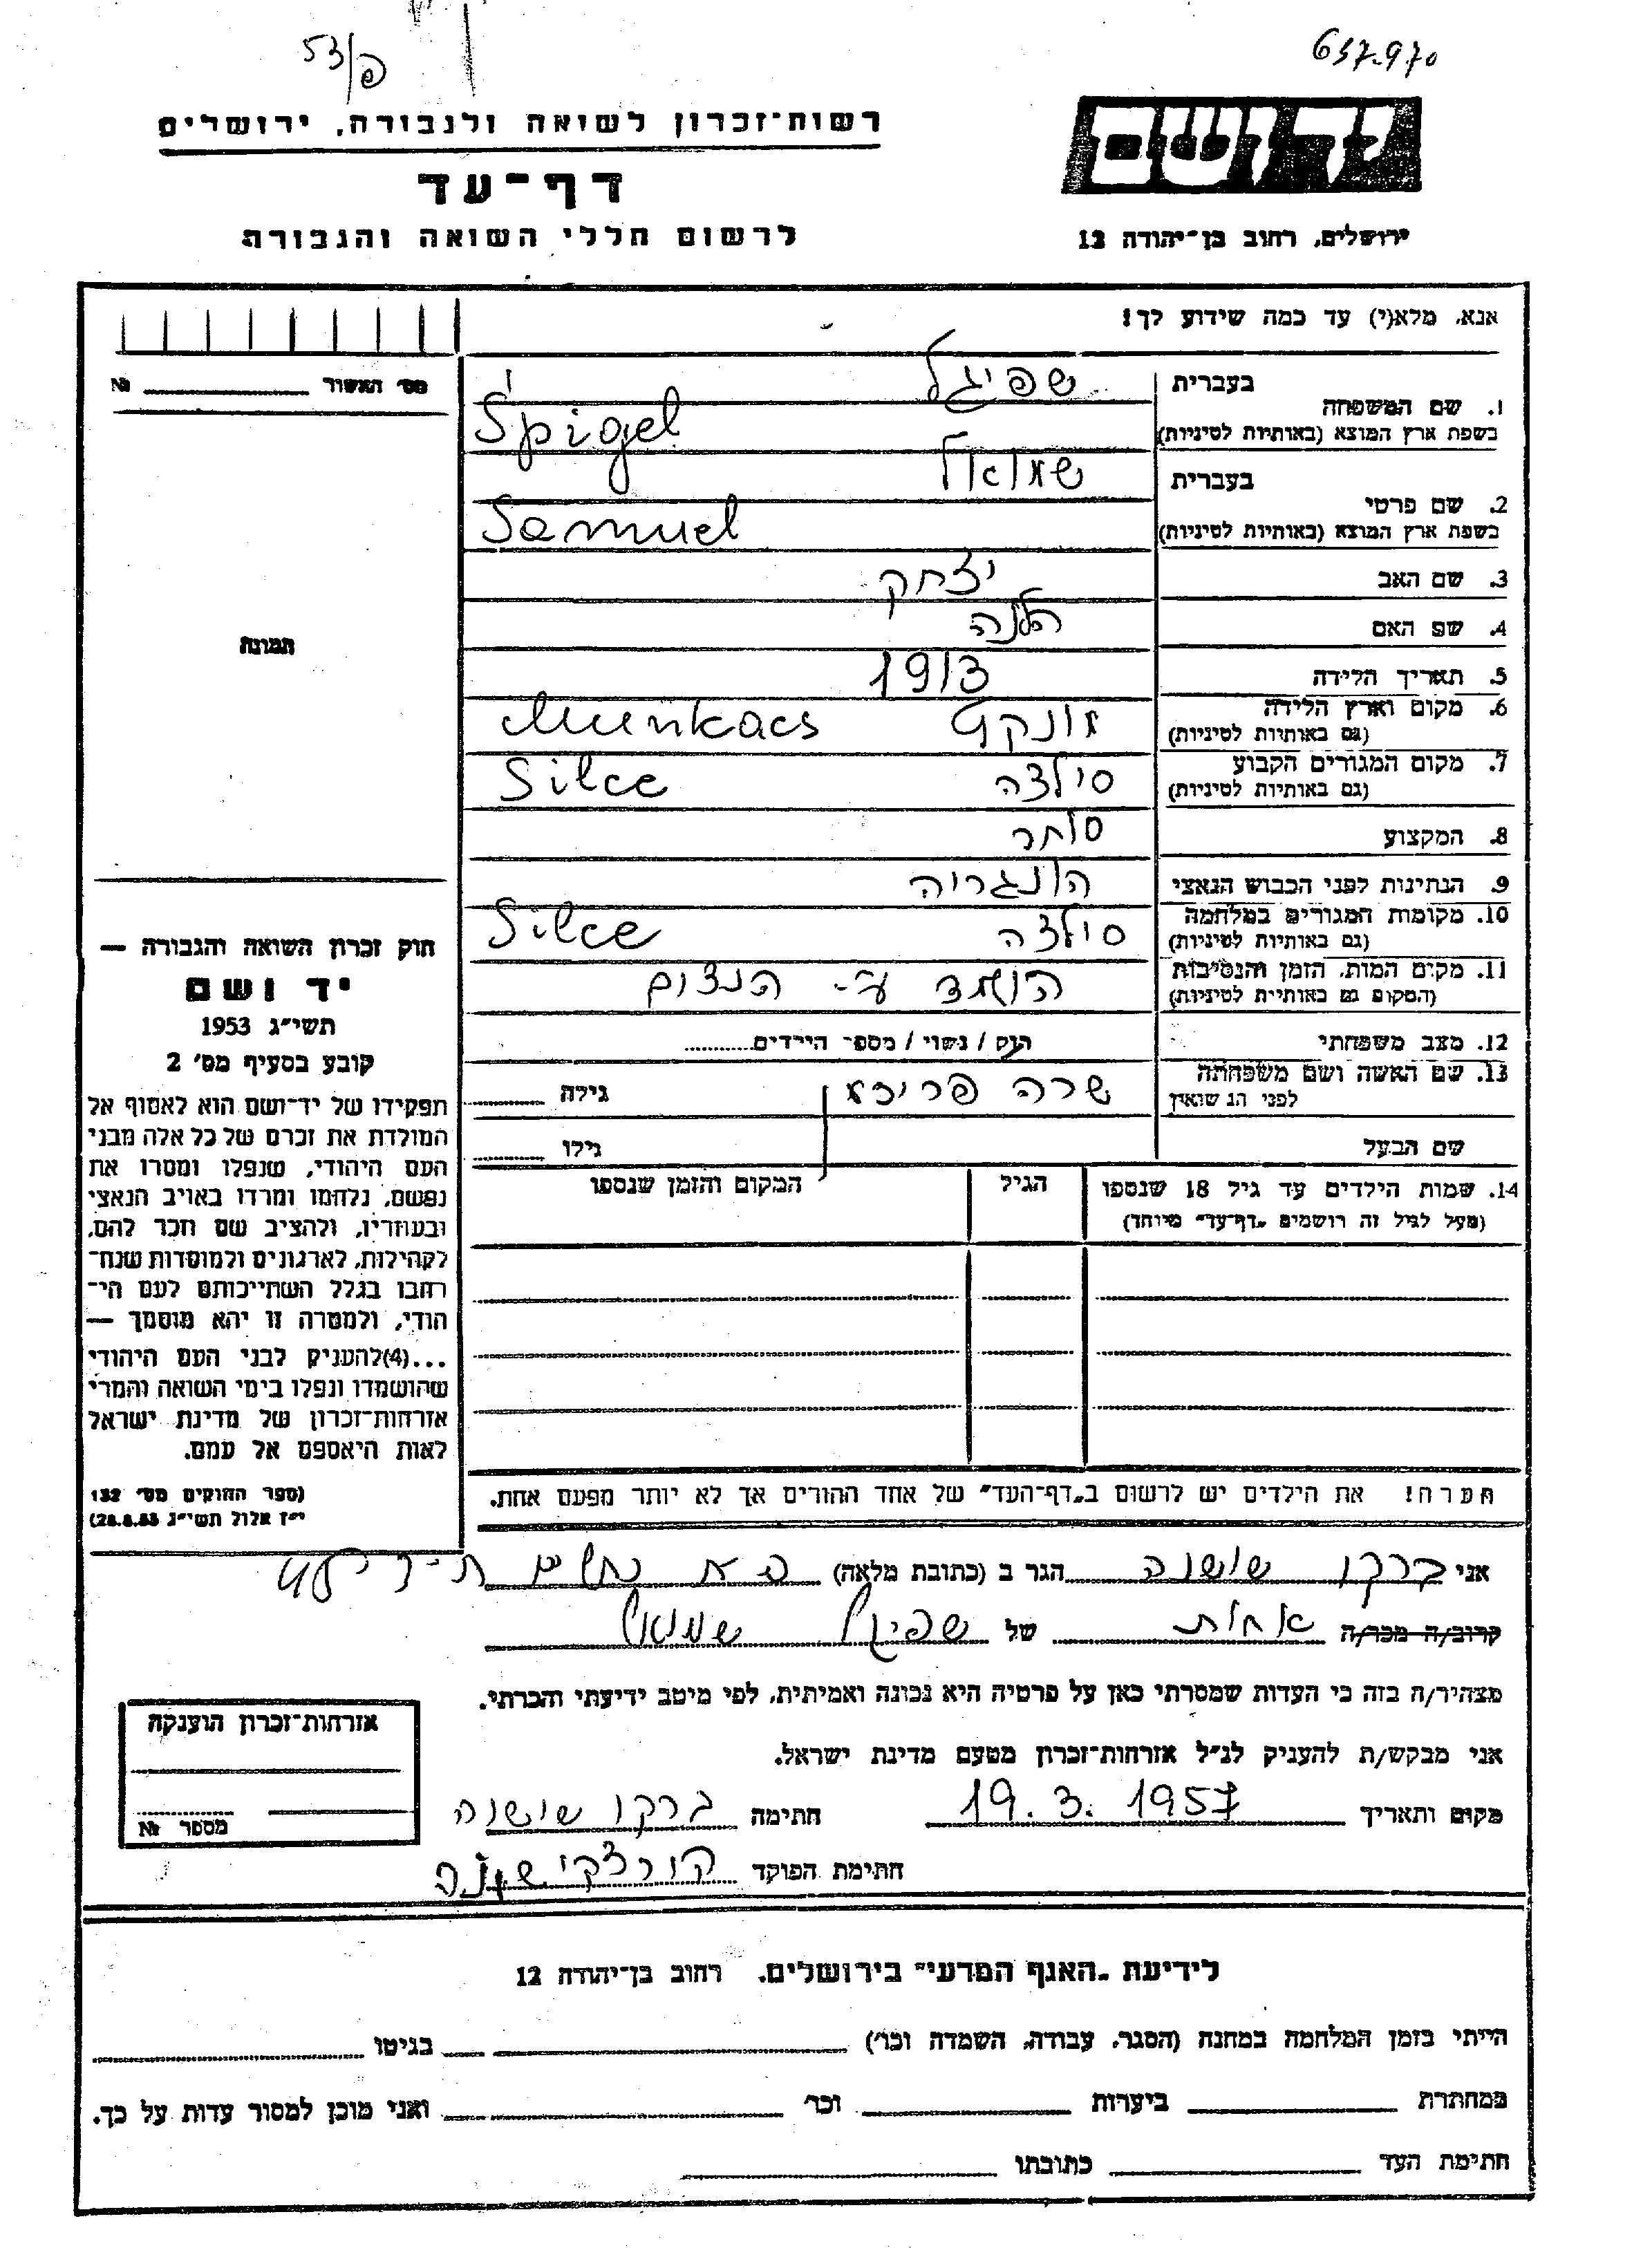 53/פ
657.970
רשות־זכרון לשואה ולגבורה, ירושלים
יד ושם
דף־עד
לרשום חללי השואה והגבורה
ירושלים, רחוב בן־יהודה 12
אנא, מלא(י) עד כמה שידוע לך!
מס׳ האשור № 
1. שם המשפחה
בעברית שפיגל
בשפת ארץ המוצא (באותיות לטיניות) Špigel
2. שם פרטי
בעברית שמואל
בשפת ארץ המוצא (באותיות לטיניות) Samuel
3. שם האב יצחק
4. שם האם הלנה
5. תאריך הלידה 1913
6. מקום וארץ הלידה
(גם באותיות לטיניות) מונקץ Munkacs
7. מקום המגורים הקבוע
(גם באותיות לטיניות) סילצה Silce
8. המקצוע סוחר
9. הנתינות לפני הכבוש הנאצי הונגריה
10. מקומות המגורים במלחמה
(גם באותיות לטיניות) סילצה Silce
11. מקום המות, הזמן והנסיבות
(המקום גם באותיות לטיניות) הושמד ע״י הנצים
12. מצב משפחתי רווק / נשוי / מספר הילדים
13. שם האשה ושם משפחתה
לפני הנשואין שרה פריכא גילה
שם הבעל גילו
14. שמות הילדים עד גיל 18 שנספו
(מעל לגיל זה רושמים „דף־עד״ מיוחד)
הגיל
המקום והזמן שנספו
הערה! את הילדים יש לרשום ב„דף־העד״ של אחד ההורים אך לא יותר מפעם אחת.
תמונה
חוק זכרון השואה והגבורה —
יד ושם
תשי״ג 1953
קובע בסעיף מס׳ 2
תפקידו של יד־ושם הוא לאסוף אל
המולדת את זכרם של כל אלה מבני
העם היהודי, שנפלו ומסרו את
נפשם, נלחמו ומרדו באויב הנאצי
ובעוזריו, ולהציב שם וזכר להם,
לקהילות, לארגונים ולמוסדות שנח־
רבו בגלל השתייכותם לעם הי־
הודי, ולמטרה זו יהא מוסמך —
...(4)להעניק לבני העם היהודי
שהושמדו ונפלו בימי השואה והמרי
אזרחות־זכרון של מדינת ישראל
לאות היאספם אל עמם.
(ספר החוקים מס׳ 132
י״ז אלול תשי״ג 28.8.53)
אני ברקו שושנה הגר ב (כתובת מלאה)
קרוב/ה מכר/ה אחות של שפיגל שמואל
מצהיר/ה בזה כי העדות שמסרתי כאן על פרטיה היא נכונה ואמיתית, לפי מיטב ידיעתי והכרתי.
אני מבקש/ת להעניק לנ״ל אזרחות־זכרון מטעם מדינת ישראל.
מקום ותאריך 19.3.1957 חתימה ברקו שושנה
חתימת הפוקד קורצקי שושנה
אזרחות־זכרון הוענקה
מספר №
לידיעת „האגף המדעי״ בירושלים, רחוב בן־יהודה 12
הייתי בזמן המלחמה במחנה (הסגר, עבודה, השמדה וכו׳) בגיטו
במחתרת ביערות וכו׳ ואני מוכן למסור עדות על כך.
חתימת העד כתובתו